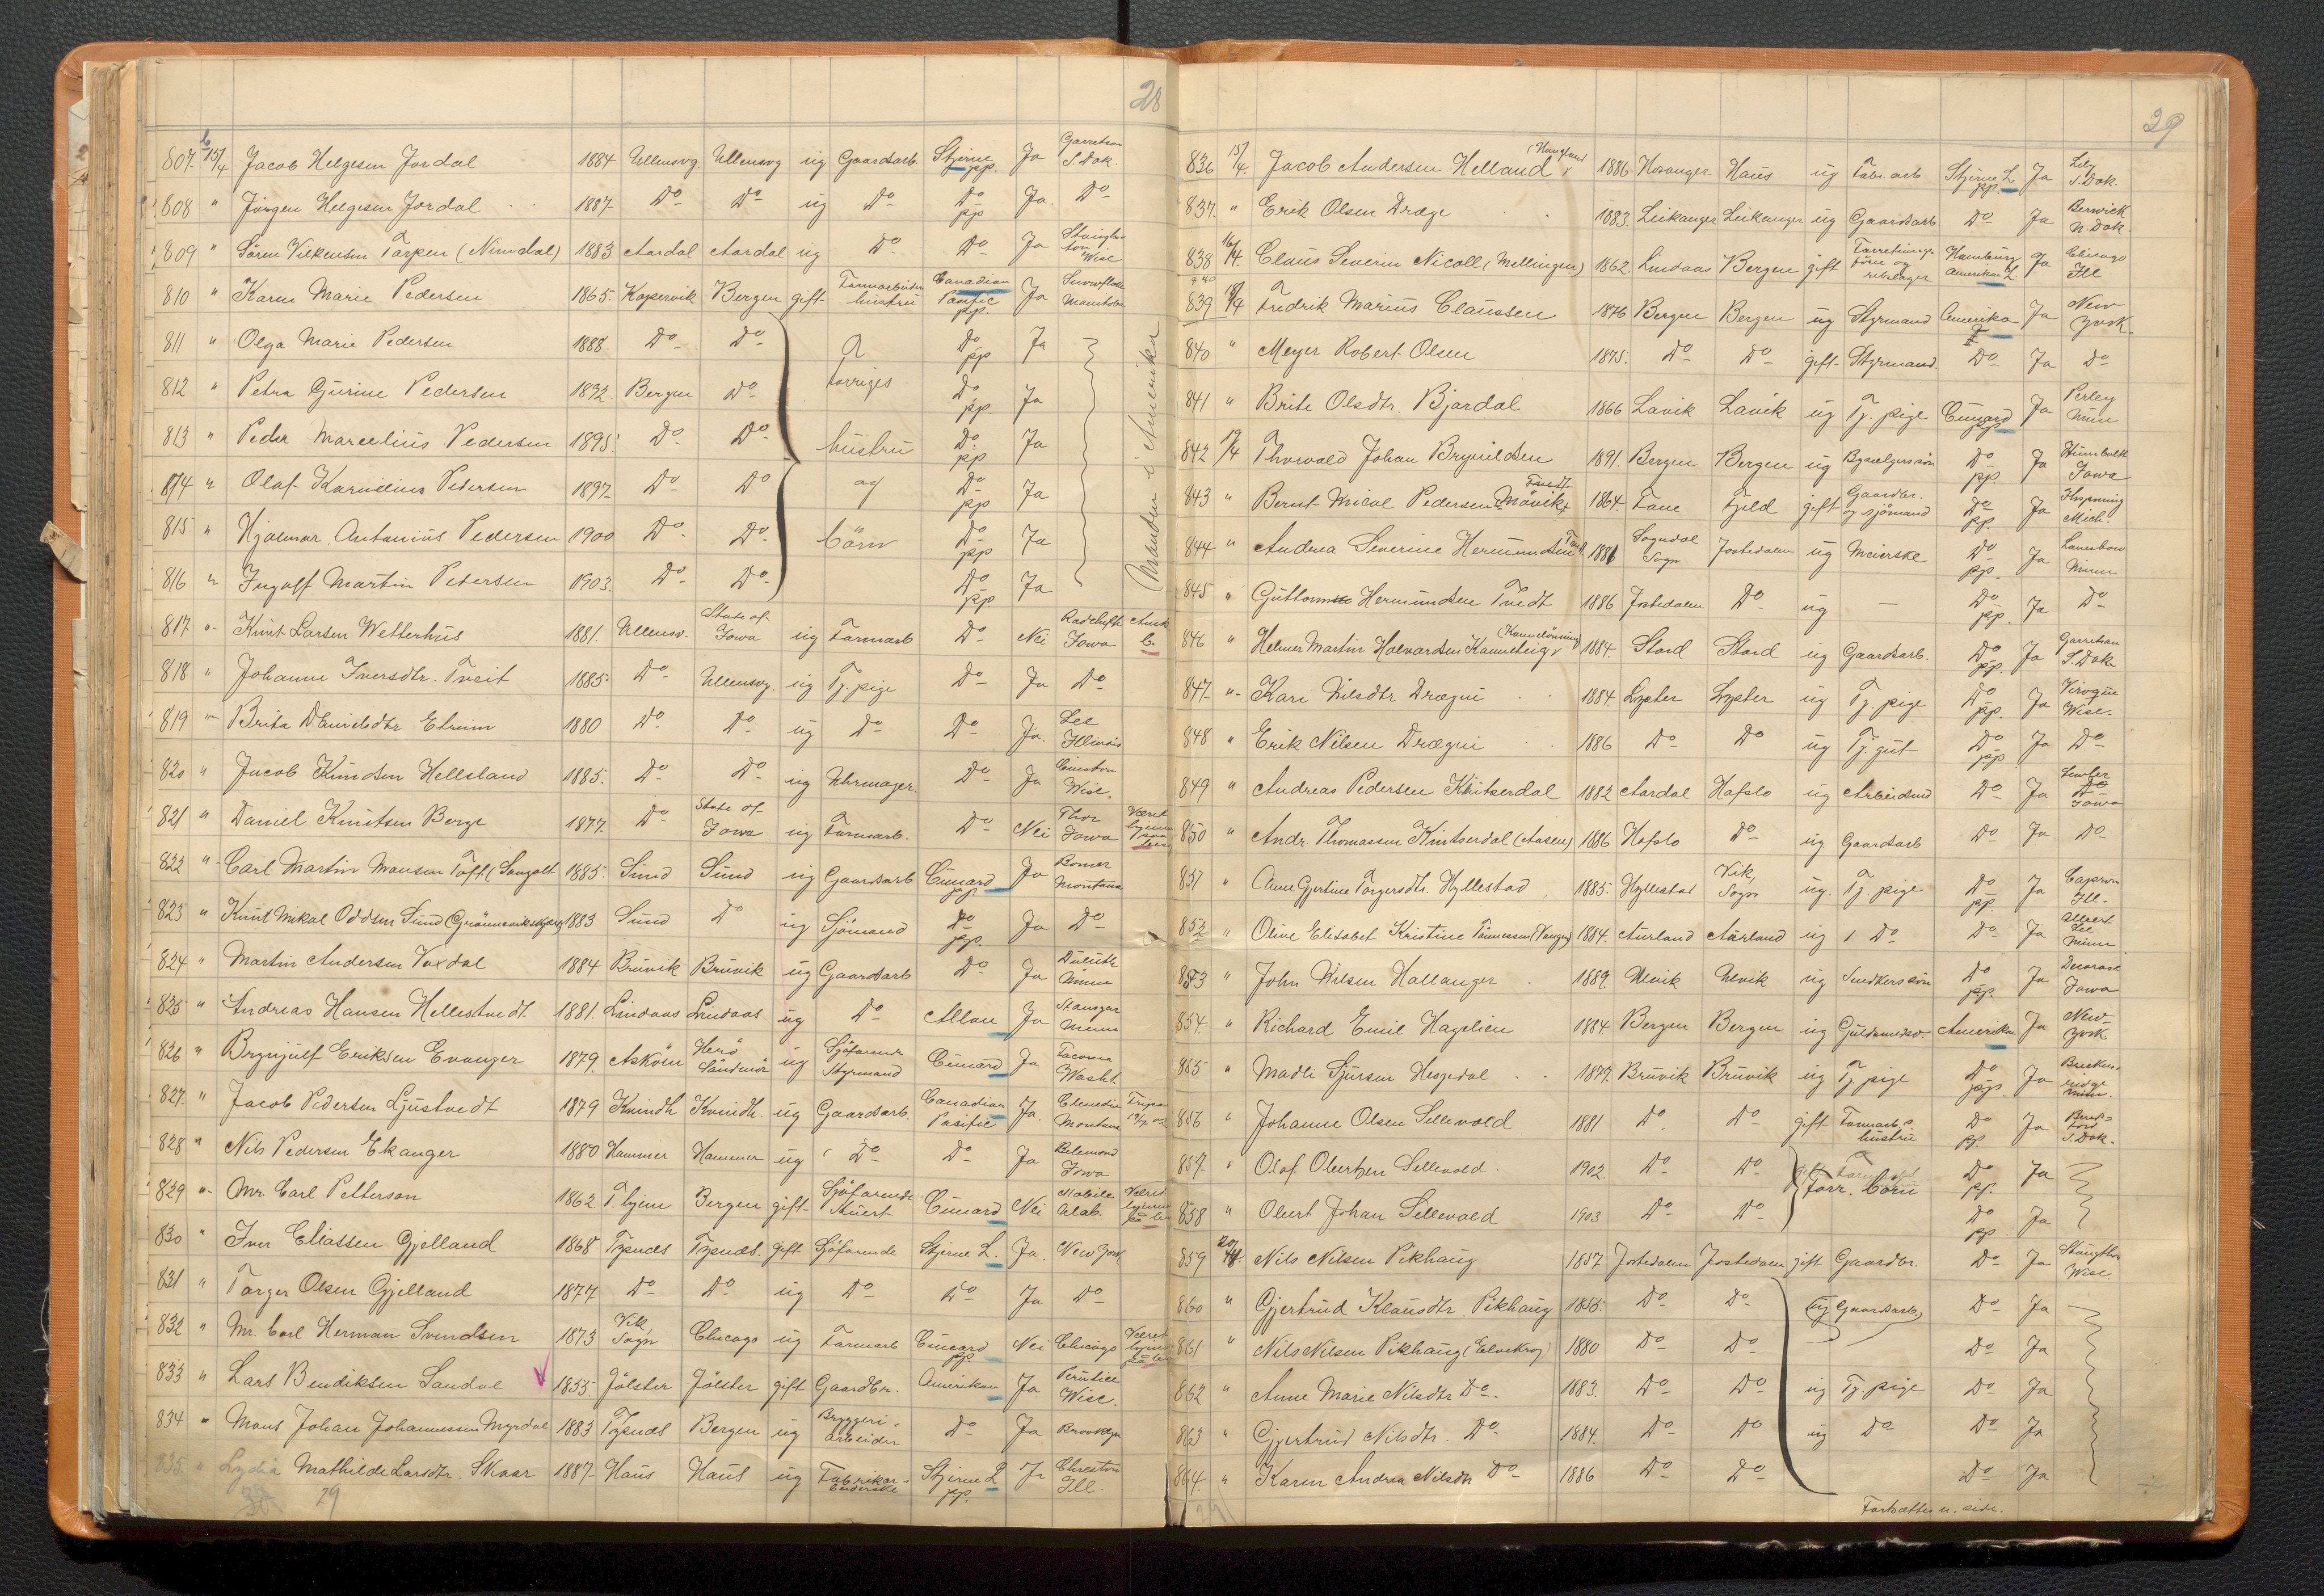 28
807. 15/4 Jacob Helgesen Jordal 1884 Ullensvg Ullensvg ug Gaardsarb. Stjerne pp. Ja Garretson S. Dak.
808 " Jörgen Helgesen Jordal 1887. Do Do ug Do Do pp Ja. Do
809 " Sören Vilkensen Tarpen (Nundal) 1883 Aardal Aardal ug Do Do Ja Wisc
810 " Karen Marie Pedersen 1865. Kopervik Bergen gift Farmarbeider hustru Canadian Pacific pp. Ja Manitoba
811 " Olga Marie Pedersen 1888 Do Do Do pp Ja
812 " Petra Gurine Pedersen 1892. Bergen Do Forriges Do pp. Ja
813 " Peder Marcelius Pedersen 1895. Do Do hustru Do pp Ja
814 " Olaf Kornelius Pedersen 1897 Do Do og Do pp Ja
815 " Hjalmar Antonius Pedersen 1900 Do Do börn Do pp Ja
816 " Ingolf Martin Pedersen 1903. Do Do Do pp. Ja
(Manden i Amerika
817 " Knut Larsen Wetterhus 1881. Ullensv. State of Iowa ug Farmarb Do Nei Radcliffe Iowa Amk b.
818 " Johanne Iversdtr. Tveit 1885. Do Ullensvg. ug Tj. pige Do Ja Do
819 " Brita Danielsdtr Eitreim 1880 Do Do ug Do Do Ja. Lee Illinois
820 " Jacob Knudsen Helleland 1885. Do Do ug Uhrmager Do Ja Wisc.
821 " Daniel Knutsen Berge 1877. Do State of Iowa ug Farmarb. Do Nei Thor Iowa Været hjemme
822 " Carl Martin Monsen Toft (Sangolt 1885. Sund Sund ug Gaardsarb Cunard pp. Ja Montana
823 " Knut Mikal Oddsen Sund 1883 Sund Do ug Sjömand Do pp. Ja Do
824 " Martin Andersen Vaxdal 1884 Bruvik Bruvik ug Gaardsarb Do Ja Duluth Minn
825 " Andreas Hansen Hellestvedt 1881. Lindaas Lindaas ug Do Allan Ja Minn
826 " Brynjulf Eriksen Evanger 1879. Asköen Herö Söndmör ug Sjöfarende Styrmand Cunard Ja Tacoma Washt.
827. " Jacob Pedersen Ljustvedt 1879 Kvindh Kvindh. ug Gaardsarb. Canadian Pasific Ja. Montana
828 " Nils Pedersen Ekanger 1880 Hammer Hammer ug Do Do Ja Belmond Iowa
829 " Mr. Carl Petterson 1862 T. hjem Bergen gift Sjöfarende Stuert Cunard Nei Mobile Alab. Været hjemme
830 " Iver Eliassen Gjelland 1868 Tysnes Tysnes. gift Sjöfarende Stjerne L. Ja. New York
831 " Torger Olsen Gjelland 1877 Do Do ug Do Do Ja Do
832 " Mr. Carl Herman Svendsen 1873 Vik, Sogn Chicago ug Farmarb Cunard pp. Nei Chicago Været hjemme
833 " Lars Bendiksen Sandal 1855. Jölster Jölster gift Gaardbr. Amerikan Ja Wisc.
834 " Mons Johan Johannessen Myrdal 1883 Tysnes Bergen ug Bryggeriarbeider Do Ja Brooklyn
835. " Lydia Mathilde Larsdtr. Skaar 1887 Haus Haus ug Fabrikarbeiderske Stjerne L pp. Ja Ill.
29
29
836 15/4. Jacob Andersen Helland (Haugland 1886 Hosanger Haus ug Fabr. arb Stjerne L pp. Ja Lily S. Dak.
837. " Erik Olsen Dræge 1883. Leikanger Leikanger ug Gaardsarb Do Ja Berwick N. Dak.
838 16/4. Claus Severin Nicoll (Mellingen) 1862. Lindaas Bergen gift Hamburg Amerika L Ja Chicago Ill
839 18/4 Fredrik Marius Claussen 1876 Bergen Bergen ug Styrmand Amerika Ja New York.
840 " Meyer Robert Olsen 1875. Do Do gift Styrmand. Do Ja Do
841 " Brite Olsdtr. Bjordal 1866 Lavik Lavik ug Tj. pige Cunard pp Ja Perley Minn
842 19/4 Thorvald Johan Brynildsen 1891. Bergen Bergen ug Do pp. Ja Humboldt Iowa
843 " Bernt Mical Pedersen Mövik 1864. Fane Fjeld gift Gaardbr. og sjömand Do pp. Ja Mich.
844 " Andrea Severine Hermundsen 1881 Sogndal Sogn Jostedalen ug Meierske Do pp. Ja Minn
845 " Guttorm Hermundsen Tvedt 1886 Jostedalen Do ug — Do pp. Ja Do
846 " Helmer Martin Halvardsen Kannelung 1884. Stord Stord ug Gaardsarb. Do pp. Ja Garretson S. Dak
847 " Kari Nilsdtr Drægni 1884. Lyster Lyster ug Tj. pige Do pp. Ja Viroque Wisc.
848 " Erik Nilsen Drægni 1886 Do Do ug Tj. gut Do pp Ja Do
849 " Andreas Pedersen Kvitserdal 1882 Aardal Hafslo ug Arbeidsmd Do Ja Iowa
850 " Andr. Thomassen Kvitserdal (Aasen) 1886 Hafslo Do ug Gaardsarb Do Ja Do
851 " Anne Gjertine Torgersdtr. Hyllestad 1885. Hyllestad Vik, Sogn ug. Tj. pige Do pp. Ja Capron Ill.
852 " Olive Elisabet Kristine Tönnessen (Vangen) 1884. Aurland Aurland ug Do Do Ja Albert Lee Minn
853 " John Nilsen Hallanger 1889. Ulvik Ulvik ug Do pp. Ja Decorah Iowa
854. " Richard Emil Hagelien 1884. Bergen Bergen ug Guldsmedsv. Amerikan Ja New York
855 " Madli Sjursen Hesjedal 1879. Bruvik Bruvik ug Tj pige Do pp. Ja Breckenridge Minn.
856 " Johanne Olsen Sellevold 1881 Do Do gift Farmarb.s hustru Do pp. Ja S. Dak.
857 " Olaf Olsen Sellevold 1902. Do Do Do pp. Ja
Forr. börn
858 " Olsert Johan Sellevold 1903 Do Do Do pp. Ja
859 20/4. Nils Nilsen Pikhaug 1857 Jostedalen Jostedalen gift Gaardbr. Do Ja Wisc.
860 " Gjertrud Klausdtr. Pikhaug 1855. Do Do (ug Gaardsarb) Do Ja
861 " Nils Nilsen Pikhaug (Elvekrog) 1880 Do Do Do Ja
862 " Anne Marie Nilsdtr Do. 1883. Do Do ug Tj. pige Do Ja
863 " Gjertrud Nilsdtr. Do 1884. Do Do ug Do Do Ja
864. " Karen Andrea Nilsdtr Do 1886 Do Do Do Ja
Fortsættes n. side.